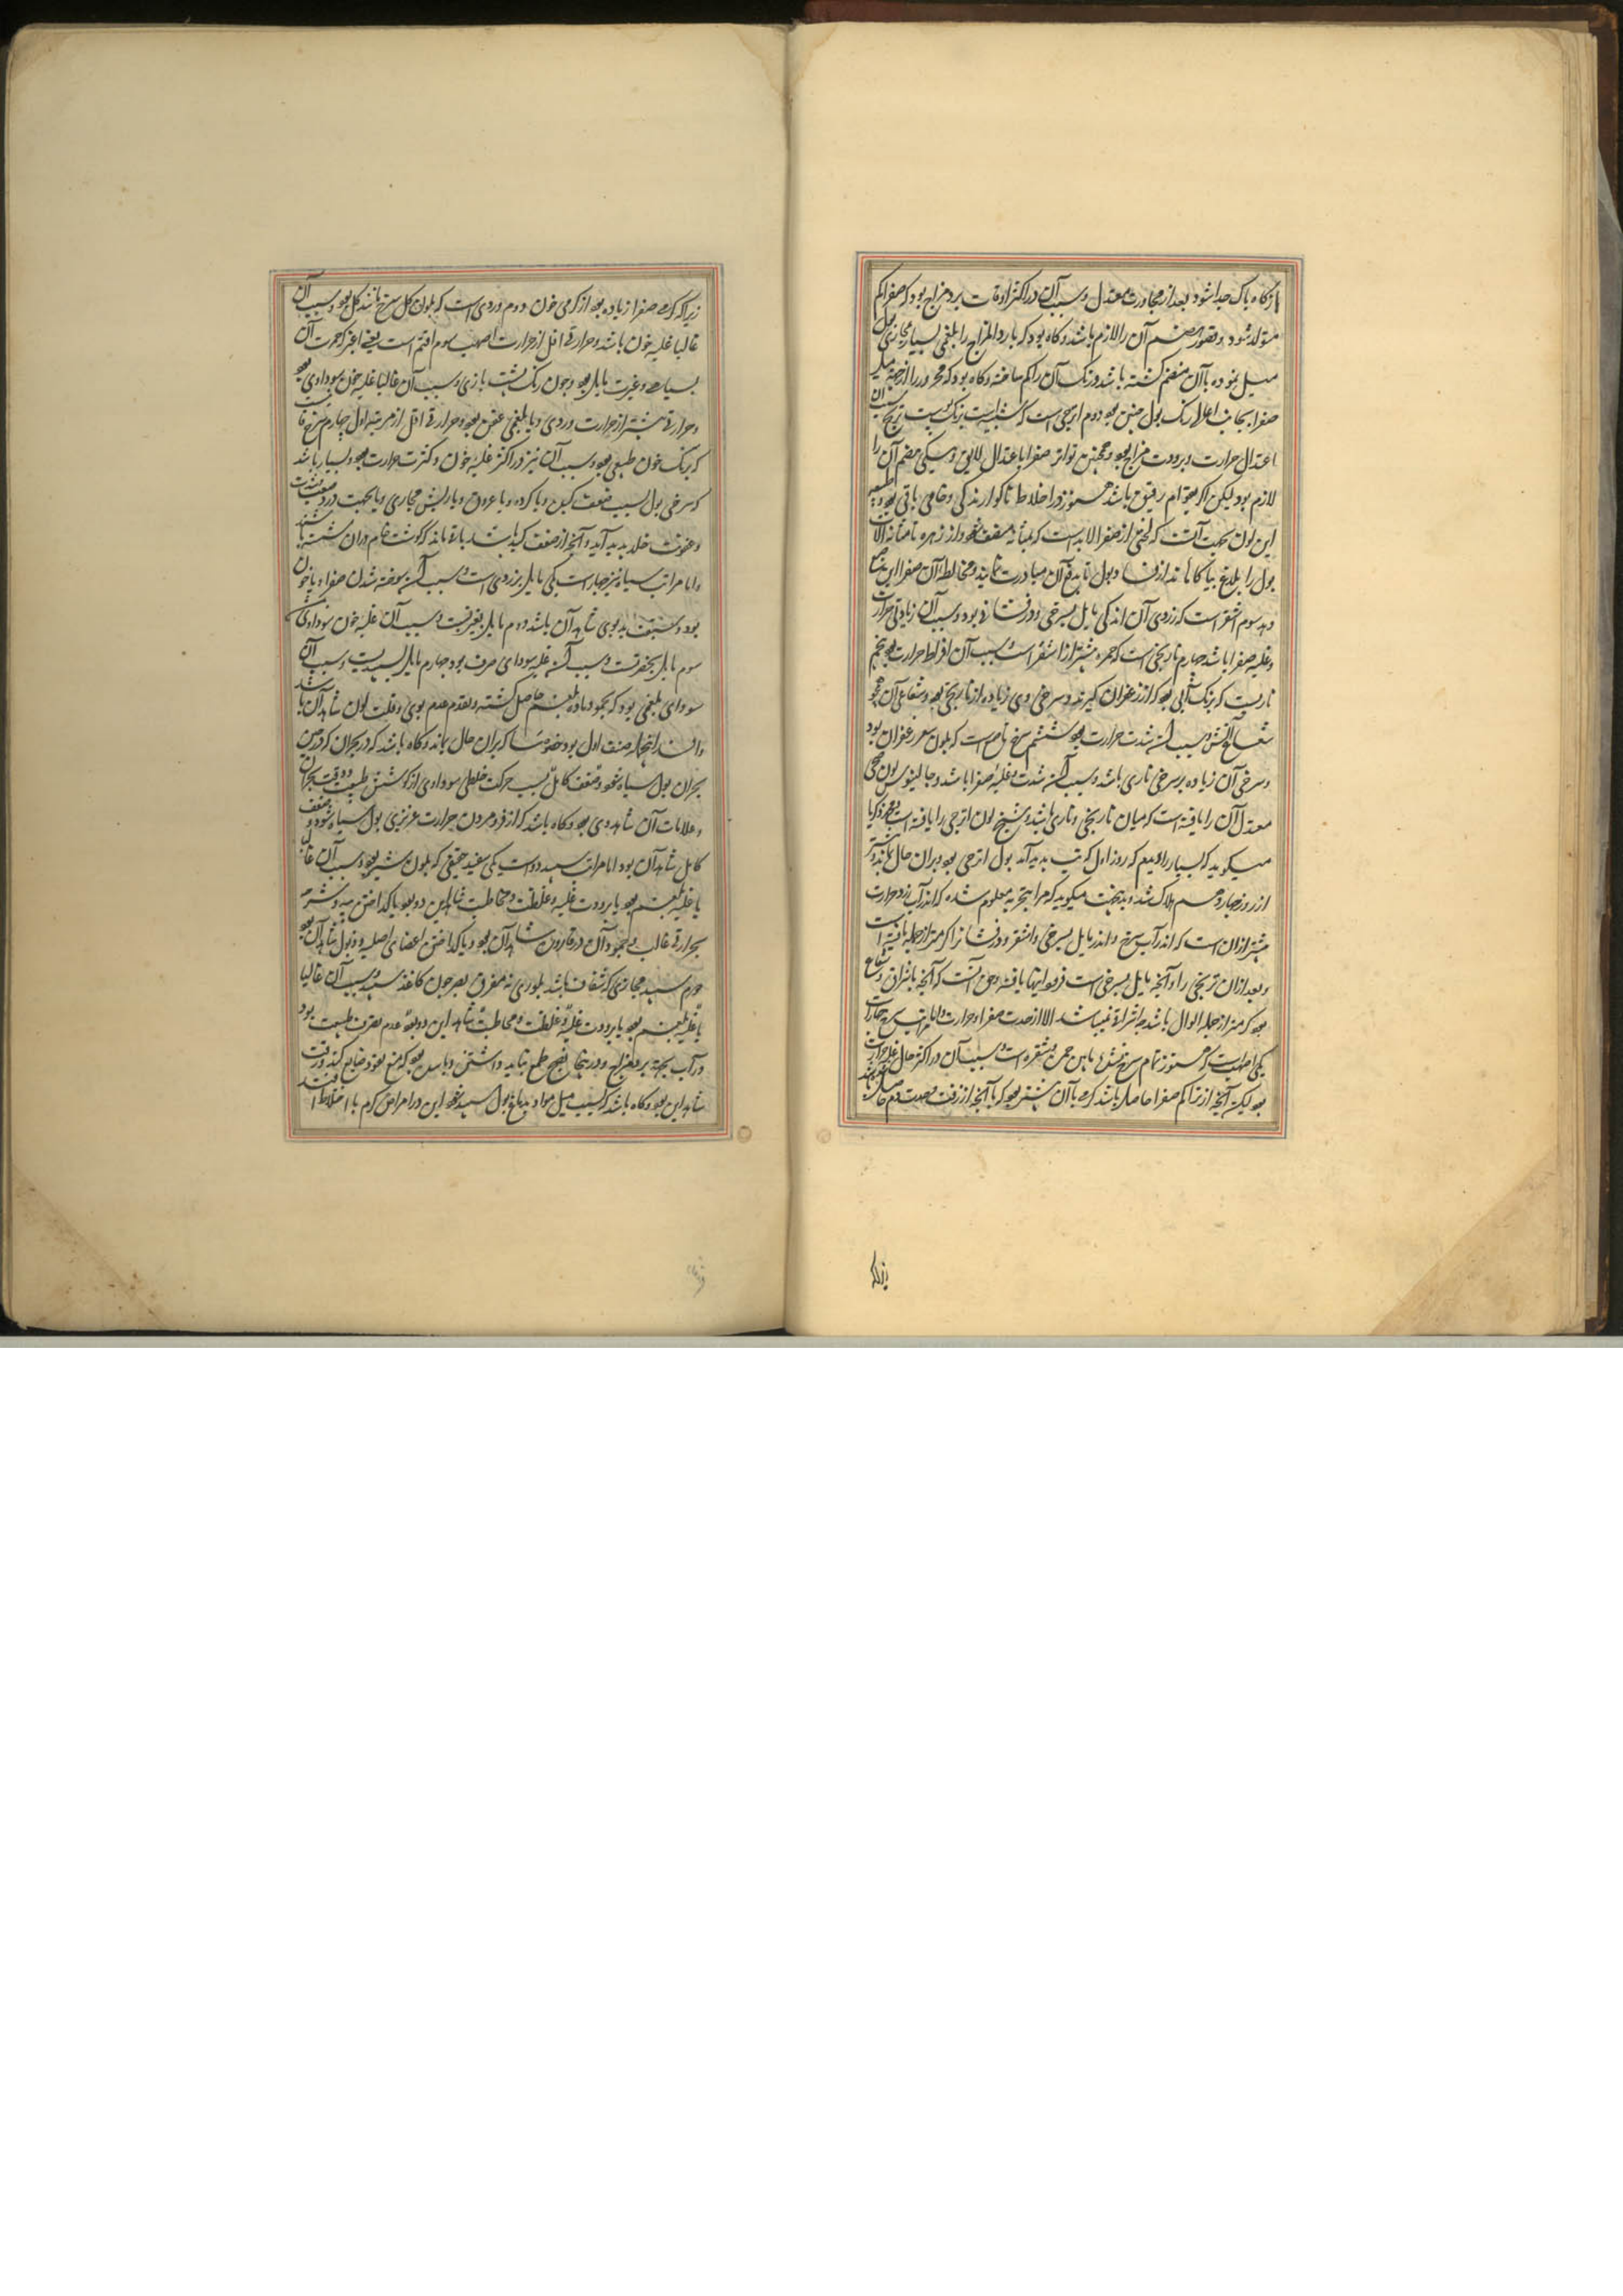 از کاه پاک جدا شود بعد از مجاورت معتدل و سبب آن در اکثر اوقات برد مزاج بود که صفرا کم
متولد شود و قصور هضم آن را لازم باشد و کاه بود که بارد المزاج را بلغمی بسیار بمجاری بول
میل نموده با آن منضم کشته باشد و رنک آن را کم ساخته و کاه بود که محرور را از جهة میل
صفرا بجانب اعالی رنک بول چنین بود دوم اترجی است که بزنک پوست ترنج سبب آن
اعتدال حرارت و برودت مزاج بود و همچنین تولد صفرا باعتدال لایق و نیکی هضم آن را
لازم بود لیکن اکر بقوام رقیق باشد هنوز در اخلاط ناکوارندکی و خامی باقی بود و
این لون بجهت آنست که لختی از صفرا لابد است که بمثانه مندفع شود از زهره تا مثانه
بول را بلاغ بیاکاهاند از و بول تا بدفع آن مبادرت نمایند و مخالطة آن صفرا این
دهد سوم اشقر است که زردی آن اندکی مایل بسرخی و درفشانی بود و سبب آن زیادتی حرارت
و غلبه صفرا باشد چهارم نارنجی است که حمره بیشتر از اشقر است و سبب آن افراط حرارت بود پنجم
ناریست که برنک آبی بود که از زعفران کیرند و سرخی وی زیاده از نارنجی بود و شعاع آن همچو
شعاع آتش و سبب آن شدت حرارت بود ششم سرخ ناصع است که بلون شعر زعفران بود
و سرخی آن زیاده بر سرخی ناری باشد و سبب آن شدت غلبه صفرا باشد و جالینوس لون
معتدل آن را یافته است که میان نارنجی و ناری باشد و شیخ لون اترجی را یافته است محمد زکریا
میکوید که بسیار را دیدم که روز اول که تب پدید آمد بول اترجی بود و بران حال بماند و
از روز چهاردهم هلاک شد و بدبخت میکوید که مرا بتجربه معلوم شده که اندر آب زرد حرارت
بیشتر از آن است که اندر آب سرخ و اندر مایل بسرخی و اشقر و درفشان را کمتر از جمله یافته است
و بعد از آن ترنجی را و آنچه مایل بسرخی است فرود اینها یافته و حق آنست که آنچه باشراق و شعاع
بود کمتر از جمله احوال باشد چه اشراق نمیباشد الا از حدت صفرا و حرارت و اما مراتب سرخ چهار است
یکی اصهب است که هنوز تمام سرخ نیست مابین حمره و شقره است و سبب آن در اکثر حال غلبه حرارت
بود لیکن آنچه از تراکم صفرا حاصل باشد کرمی با آن بیشتر بود که با آنچه از رقت و حدت دم حاصل باشد
زیرا که
زیرا که کرمی صفرا زیاده بود از کرمی خون دوم وردی است که بلون کل سرخ مانند کل بود و سبب آن
غالبا غلبه خون باشد و حرارتی اقل از حرارت اصهب سوم اقتم است یعنی اغبر که حمرت آن
بسیاهی و غبرت مایل بود و چون رنک پشت بازی و سبب آن غالبا غلبه خون سوداوی بود
و حرارتی بیشتر از حرارت وردی و یا بلغمی عفن بود و حرارتی اقل از مرتبه اول چهارم سرخ قانیست
که برنک خون طبیعی بود و سبب آن نیز در اکثر غلبه خون و کثرت حرارت بود و بسیار باشد
که سرخی بول بسبب ضعف کبد و یا کرده و یا عروق و یا ریش مجاری و یا بجهت درد صعب شدت
و عفونت خلط پدید آید و آنچه از ضعف کبد باشد بآبی ماند که کوشت خام دران شسته باشند
و اما مراتب سیاه نیز چهار است یکی مایل بزردی است و سبب آن سوخته شدن صفرا و یا خون
بود و سبقت بدبوی شاهد آن باشد دوم مایل بقرفت و سبب آن غلبه خون سوداوی
سوم مایل بخضرت و سبب آن غلبه سودای صرف بود چهارم مایل بسپیدیست و سبب آن
سودای بلغمی بود که بجمود ماده بلغم حاصل کشته و تقدم عدم بوی و قلت لون شاهد آن باشد
و اسلم انحاء صنف اول بود خصوصا که بران حال بماند و کاه باشد که در بحران که در حین
بحران بول سیاه شود و ضعف کامل بسبب حرکت خلطی سوداوی از کوشش طبیعت و وقت بحران
و علامات آن شاهد وی بود و کاه باشد که از فرو مردن حرارت غریزی بول سیاه شود و ضعف
کامل شاهد آن بود اما مراتب سپید دو است یکی سفید حقیقی که بلون شیر بود و سبب آن غالبا
یا غلبه بلغم بود یا برودت غلبه و غلظت و مخاطیت شاهد این دو بود یا کداختن پیه و شرب
بحرارتی غالب و جمود آن در قاروره شاهد آن بود و یا کداختن اعضای اصلیه و ذبول شاهد آن بود
دوم سپید مجازی که شفاف باشد بلوری نه مفرق بصر چون کاغذ سپید و سبب آن غالبا
یا غلبه بلغم بود یا برودت غلبه و غلظت و مخاطیت شاهد این دو بود یا عدم تصرف طبیعت بود
در آب بجهة برد مزاج و در اینجا نضج طمع نباید داشتن و یا سده بود که منع نفوذ صابغ کند و رقت
شاهد این بود و کاه باشد که بسبب میل مواد بدماغ بول سپید شود و این در امراض کرم با اختلاط افتد